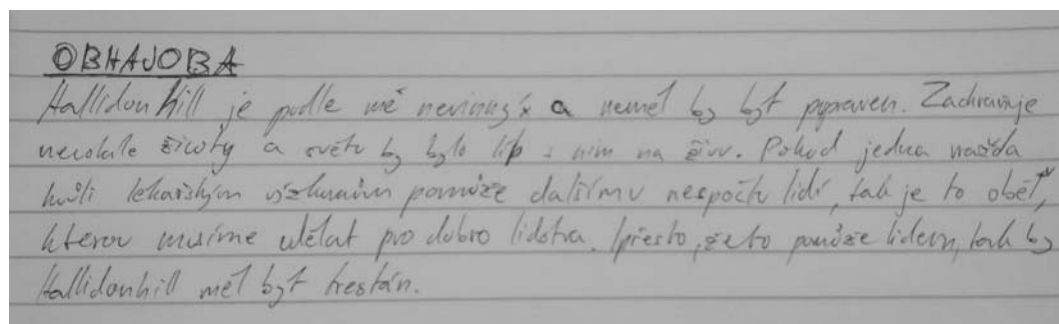 OBHAJOBA
Hallidonhill je podle mě nevinný a neměl by být popraven. Zachraňuje
životy a světu by bylo líp s ním na živu. Pokud jedna vražda
kvůli lékařským výzkumům pomůže dalšímu nespočtu lidí, tak je to oběť,
kterou musíme udělat pro dobro lidstva. Ipřesto, že to pomůže lidem, tak by
Hallidonhill měl být trestán.